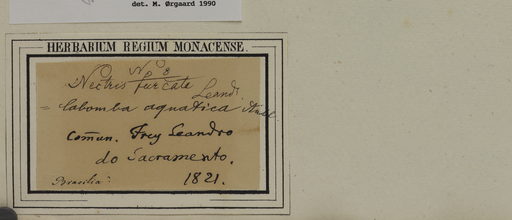 det. M. Ørgaard 1990
HERBARIUM REGIUM MONACENSE.
No 8
Nectris furcata Leandr
= Cabomba aquatica
Comun. Frey Leandro
do Sacramento.
Brasilia: 1821.